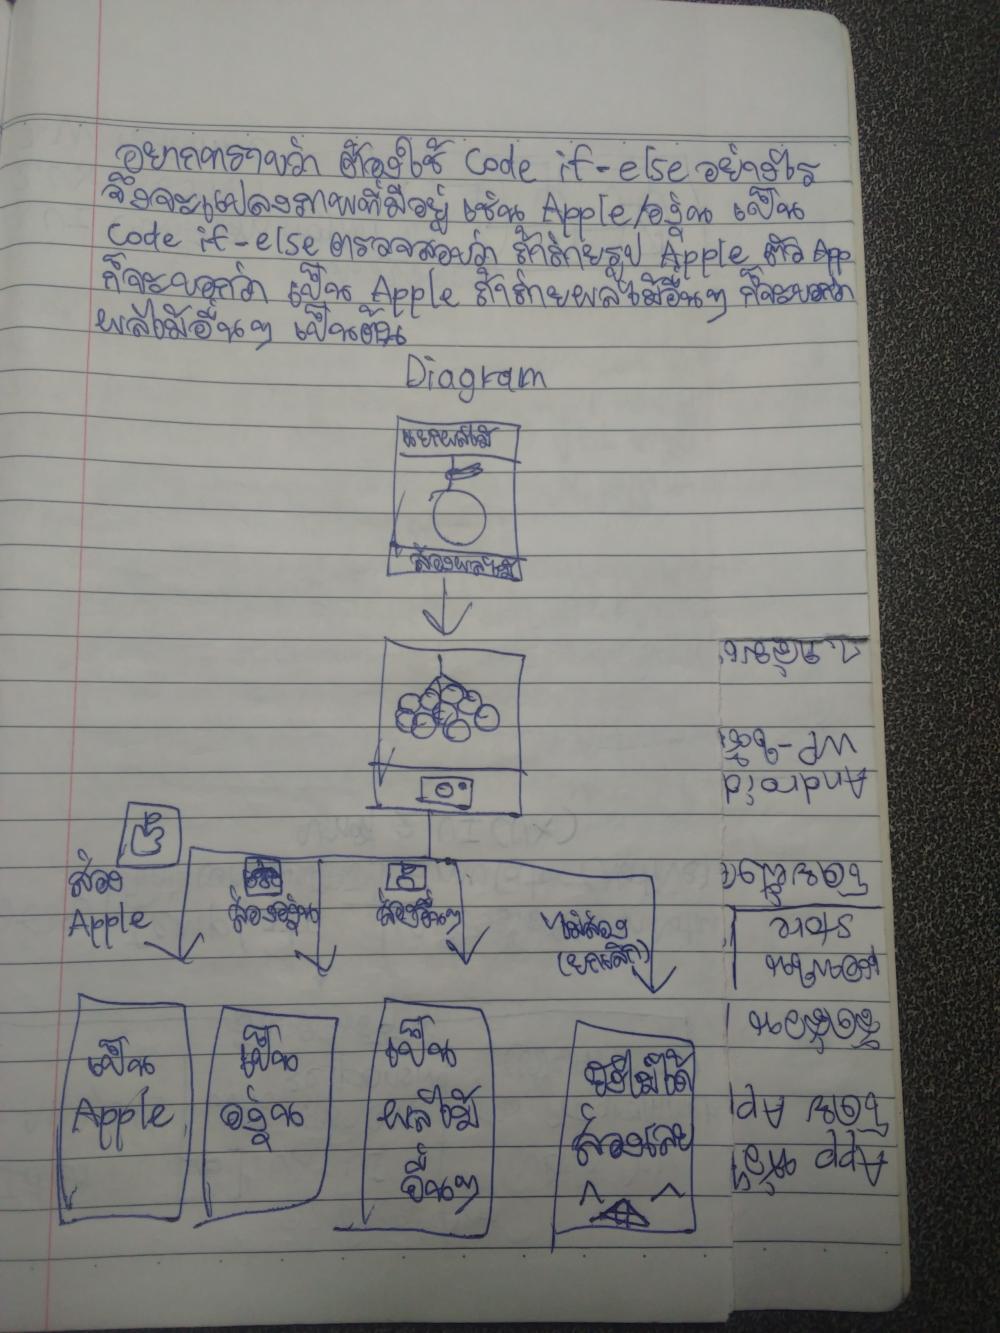 อยากทราบว่า ต้องใช้ Code if-else อย่างไร
จึงจะแปลงภาพที่มีอยู่ เช่น Apple/องุ่น เป็น
Code if-else ตรวจสอบว่า ถ้าถ่ายรูป Apple ตัว App
ก็จะบอกว่า เป็น Apple ถ้าถ่ายผลไม้อื่นๆ ก็จะบอกว่า
ผลไม้อื่นๆ เป็นต้น
Diagram
แยกผลไม้
ส่องผลไม้
ส่อง
Apple
ส่ององุ่น
ส่องอื่นๆ
ไม่ส่อง
(ยกเลิก)
เป็น
Apple
เป็น
องุ่น
เป็น
ผลไม้
อื่นๆ
ไม่ได้
ส่องเลย
WP-
Android
Store
App